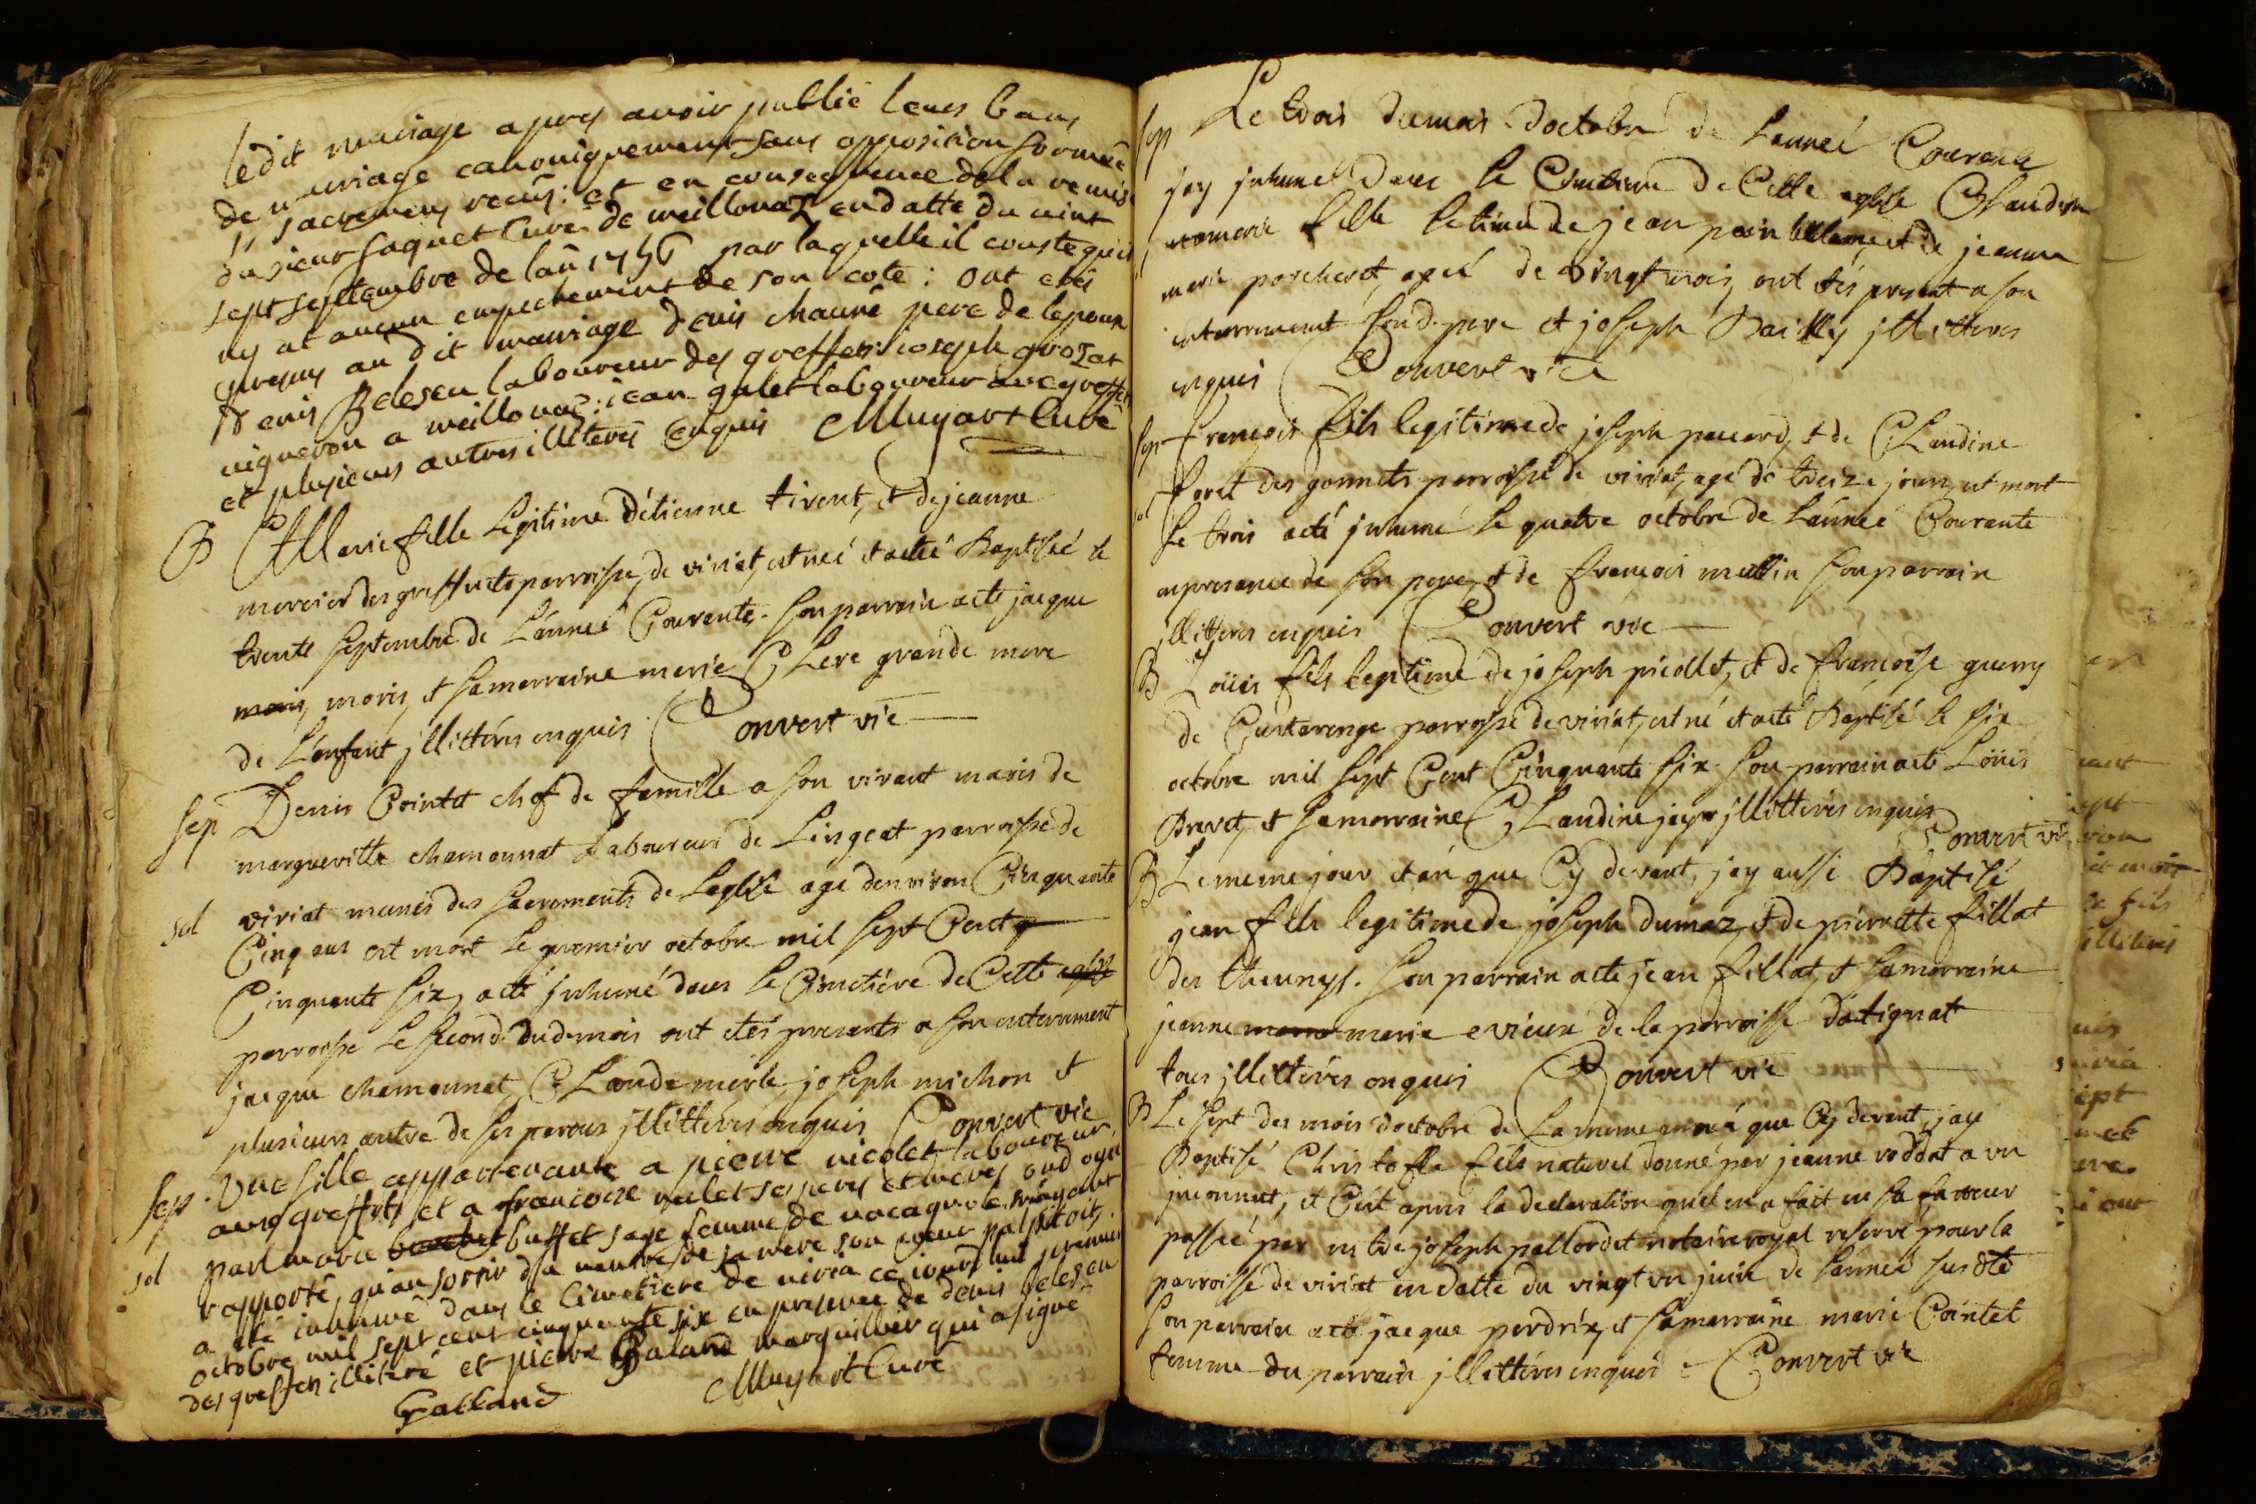 ledit mariage apres avoir publié leurs bans
de mariage canoniquement sans opposition formée
sacremens recus: et en consequence de la remise
du sieur faquet Curé de meillonaz en datte du vint
sept septembre de lan 1756 par laquelle il conste qu'il
ny at aucun empechement de son coté: ont etés
presens au dit mariage denis chauné pere de lepoux
denis Belesen laboureur des greffets: ioseph grozat
vigneron a meillonaz: jean galet laboureur aux greffets
et plusieurs autres illiterés enquis Muyart Curé
B Marie fille Legitime d'etienne tirent, et de jeanne
mercier des greffets parroisse de viriat, est neé et a eté Baptisée le
trente septembre de L'anneé Courante. son parrain a eté jacque
moris, et sa marraine marie Clere grande mere
de L'enfant jllittérés enquis Convert vic
sep Denis Cointet chef de famille a son vivant maris de
margueritte chamonnat Laboureur de Lingeat parroisse de
sol viriat munis des sacrements de Leglise agé denviron Cinquante
Cinq ans est mort le premier octobre mil sept Cent
Cinquante six, a eté jnhumé dans le Cimetiére de Cette
parroisse Le second dud. mois ont etés presents a son enterrement
jacque chamonnat, Claude merle, joseph michon et
plusieurs autre de ses parens jllittérés enquis Convert vic
sep Une fille appartenante a pierre nicolet laboureur
aux greffets et a francoise galet ses peres et meres
par marie buffet sage femme de
sol rapporté, qu'au sortir du ventre de sa mere son coeur palpitoit,
a eté inhumé dans le Cimetiere de viria ce iourd'hui premier
octobre mil sept cent cinquante six en presence de denis belesen
des greffets illiteré et pierre Galand marguillier qui a signé
Galland Muyart Curé
sep Le trois du mois d'octobre de L'anneé Courante
jay jnhumé dans le Cimetiere de Cette eglise Claudine
marie fille Letime de jean et de jeanne
marie porcheret, ageé de vingt mois, ont étés present a son
enterrement sond. pere et joseph Bailly jllitteres
enquis Convert vic
sep François fils legitime de joseph pauard, et de Claudine
foret des gonnets parroisse de viriat, agé de treize jours, est mort
sol le trois a eté jnhumé le quatre octobre de L'année Courante
en presance de son pere, et de françois mullin son parrain
jllitteres enquis Convert vic
B Loüis fils legitime de joseph picollet, et de françoise guerry
de Curtaringe parroisse de viriat, est né et a eté Baptisé le six
octobre mil sept Cent Cinquante six. son parrain a eté Loüis
Brevet, et sa marraine Claudine jayr jllittérés enquis
Convert vic
B Le meme jour et an que Cy devant, jay aussi Baptisé
jean fils legitime de joseph dumaz, et de pierrette fillat
des . son parrain a eté jean fillat, et sa marraine
jeanne marie evieux de la parroisse d'atignat
tous jllittérés enquis Convert vic
B Le sept des mois d'octobre de La meme anneé que Cy devant, jay
Baptisé Christofle fils naturel donné par jeanne voddat a un
jnconnut, et C'est apres la declaration qu'el m'a fait en sa faveur
passeé par m.tre joseph pallordet notaire royal reservé pour la
parroisse de viriat en datte du vingt un juin de L'anneé susdte
Son parrain a eté jacque perdrix, et sa marraine marie Cointet
femme du parrain jllittérés enquis Convert vic